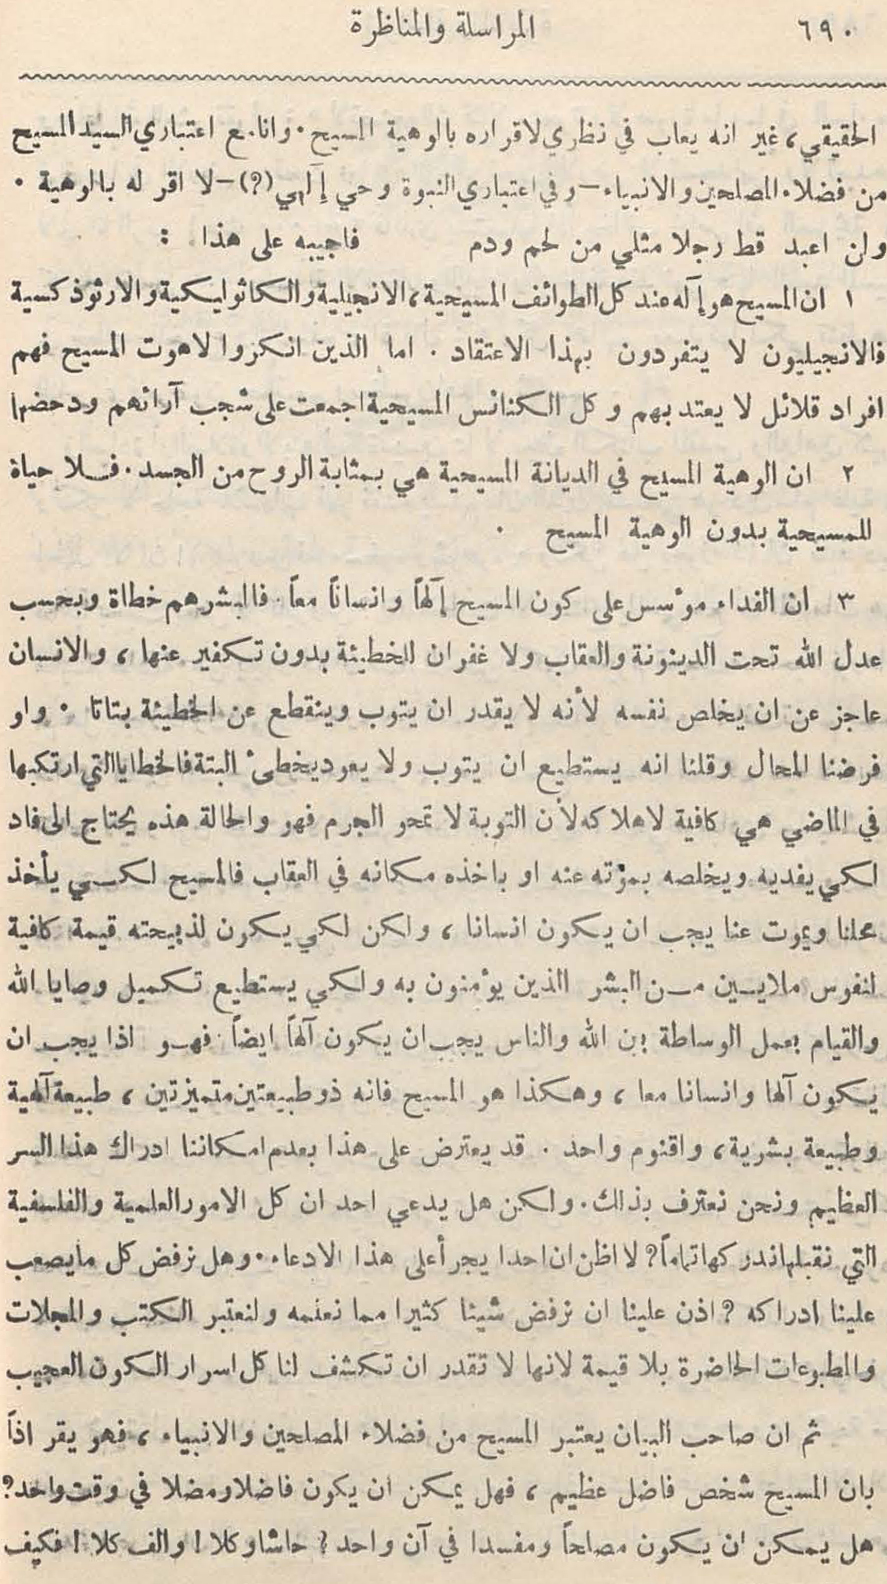 ٦٩٠
المراسلة والمناظرة
الحقيقي، غير انه يعاب في نظري لاقراره بالوهية المسيح. وانا مع اعتباري السيد المسيح
من فضلاء المصلحين والانبياء—وفي اعتباري النبوة وحي إلهي (؟)—لا اقر له بالوهية .
ولن اعبد قط رجلا مثلي من لحم ودم فاجيبه على هذا :
١ ان المسيح هو إله عند كل الطوائف المسيحية، الانجيلية والكاثوليكية والارثوذكسية
فالانجيليون لا يتفردون بهذا الاعتقاد . اما الذين انكروا لاهوت المسيح فهم
افراد قلائل لا يعتد بهم وكل الكنائس المسيحية اجمعت على شجب آرائهم ودحضها
٢ ان الوهية المسيح في الديانة المسيحية هي بمثابة الروح من الجسد. فلا حياة
للمسيحية بدون الوهية المسيح .
٣ ان الفداء مؤسس على كون المسيح إلهاً وانساناً معاً. فالبشر هم خطاة وبحسب
عدل الله تحت الدينونة والعقاب ولا غفران للخطيئة بدون تكفير عنها، والانسان
عاجز عن ان يخلص نفسه لأنه لا يقدر ان يتوب وينقطع عن الخطيئة بتاتا . ولو
فرضنا المحال وقلنا انه يستطيع ان يتوب ولا يعود يخطئ البتة فالخطايا التي ارتكبها
في الماضي هي كافية لاهلاكه لأن التوبة لا تمحو الجرم فهو والحالة هذه يحتاج الى فاد
لكي يفديه ويخلصه بموته عنه او باخذه مكانه في العقاب فالمسيح لكي يأخذ
محلنا ويموت عنا يجب ان يكون انسانا، ولكن لكي يكون لذبيحته قيمة كافية
لنفوس ملايين من البشر الذين يؤمنون به ولكي يستطيع تكميل وصايا الله
والقيام بعمل الوساطة بين الله والناس يجب ان يكون آلهاً ايضاً. فهو اذا يجب ان
يكون آلها وانسانا معا، وهكذا هو المسيح فانه ذو طبيعتين متميزتين، طبيعة آلهية
وطبيعة بشرية، واقنوم واحد . قد يعترض على هذا بعدم امكاننا ادراك هذا السر
العظيم ونحن نعترف بذلك. ولكن هل يدعي احد ان كل الامور العلمية والفلسفية
التي نقبلها ندركها تماماً؟ لا اظن ان احدا يجرأ على هذا الادعاء. وهل نرفض كل ما يصعب
علينا ادراكه ؟ اذن علينا ان نرفض شيئا كثيرا مما نعلمه ولنعتبر الكتب والمجلات
والمطبوعات الحاضرة بلا قيمة لانها لا تقدر ان تكشف لنا كل اسرار الكون العجيب
ثم ان صاحب البيان يعتبر المسيح من فضلاء المصلحين والانبياء، فهو يقر اذاً
بان المسيح شخص فاضل عظيم، فهل يمكن ان يكون فاضلا ومضلا في وقت واحد؟
هل يمكن ان يكون مصلحاً ومفسدا في آن واحد ؟ حاشا وكلا ! والف كلا ! فكيف